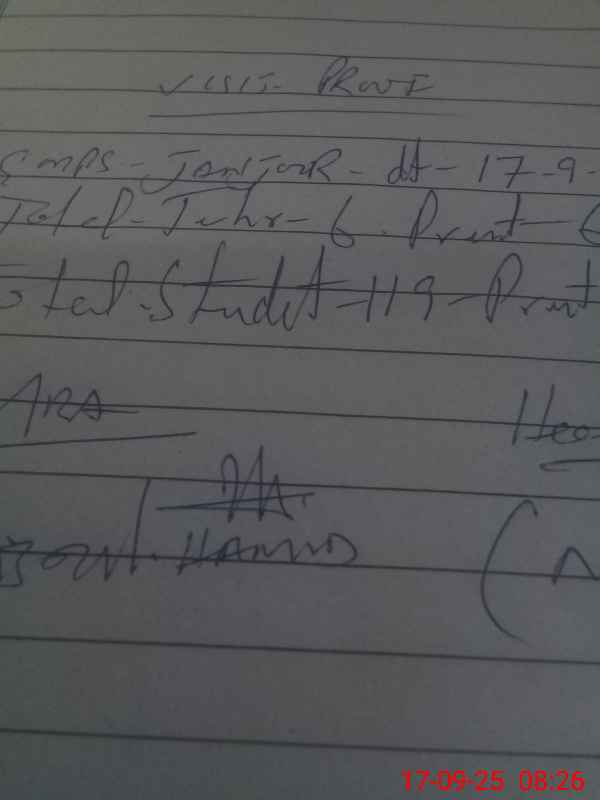 VISIT- PROOF
GMPS- JANJOOR- dt- 17-9-
Total- Tehr- 6. Prent- 6
Total- Studet- 119- Prent
ARA
Hea
HAMID
17-09-25 08:26